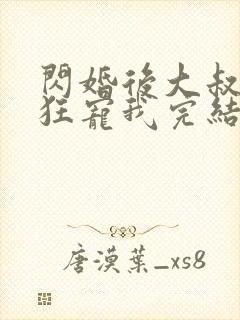 閃婚後大叔
狂寵我完結
唐漠葉_xs8